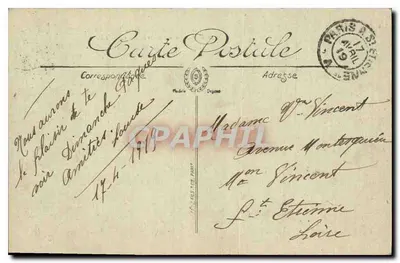 Carte Postale
Correspondance
Adresse
PARIS A St ETIENNE
17
AVRIL
19
Nous aurons
le plaisir de te
voir Dimanche Pâques
Amitiés
17-4-1919
Madame Vve Vincent
Avenue
Mon Vincent
St Etienne
Loire
CPARHTI